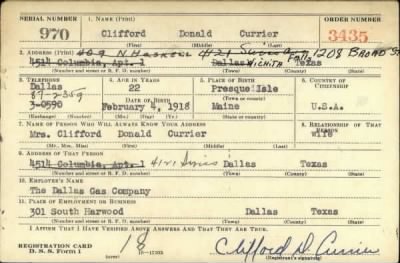 SERIAL NUMBER 1. NAME (Print) ORDER NUMBER
970 Clifford Donald Currier 3435
(First) (Middle) (Last)
2. ADDRESS (Print) 409 N HASKELL 4121 Falls 1208 BROAD ST
4514 Columbia, Apt. 1 Dallas WICHITA Texas
(Number and street or R. F. D. number) (Town) (County) (State)
3. TELEPHONE 4. AGE IN YEARS 5. PLACE OF BIRTH 6. COUNTRY OF CITIZENSHIP
Dallas 22 Presque Isle
87-2359 DATE OF BIRTH (Town or county)
3-0590 February 4, 1918 Maine U.S.A.
(Exchange) (Number) (Mo.) (Day) (Yr.) (State or country)
7. NAME OF PERSON WHO WILL ALWAYS KNOW YOUR ADDRESS 8. RELATIONSHIP OF THAT PERSON
Mrs. Clifford Donald Currier wife
(Mr., Mrs., Miss) (First) (Middle) (Last)
9. ADDRESS OF THAT PERSON
4514 Columbia, Apt. 1 4121 Dallas Texas
(Number and street or R. F. D. number) (Town) (County) (State)
10. EMPLOYER'S NAME
The Dallas Gas Company
11. PLACE OF EMPLOYMENT OR BUSINESS
301 South Harwood Dallas Texas
(Number and street or R. F. D. number) (Town) (County) (State)
I AFFIRM THAT I HAVE VERIFIED ABOVE ANSWERS AND THAT THEY ARE TRUE.
REGISTRATION CARD
D. S. S. Form 1 18 Clifford D. Currier
(Registrant's signature)